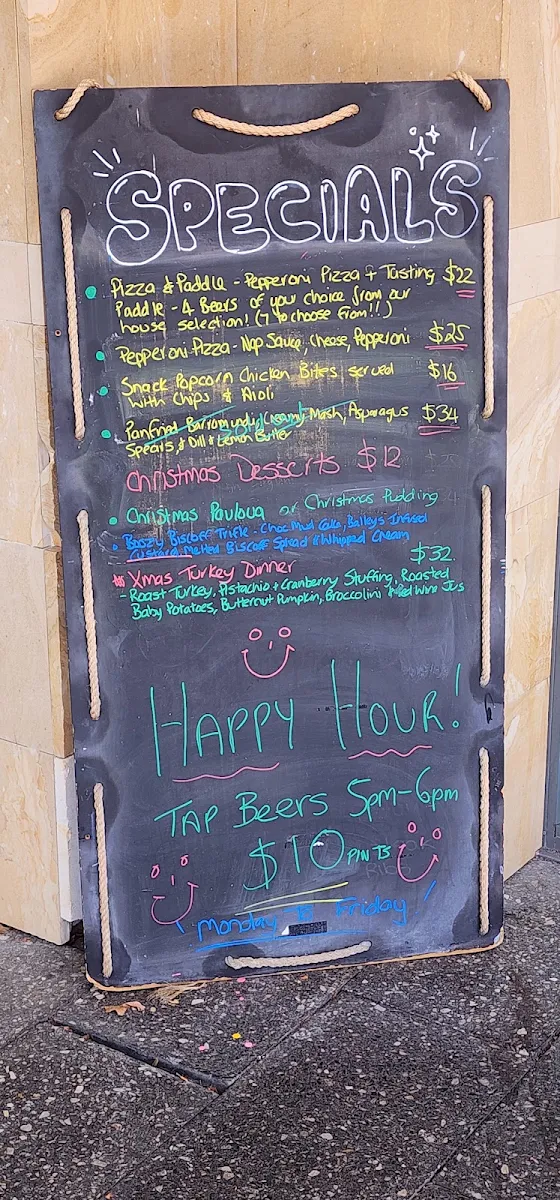 SPECIALS
Pizza & Paddle - Pepperoni Pizza + Tasting $22
Paddle - 4 Beers of your choice from our
house selection! (7 to choose from!!)
Pepperoni Pizza - Nap Sauce, Cheese, Pepperoni $25
Snack Popcorn Chicken Bites served $16
with Chips & Aioli
Panfried Barramundi, Creamy Mash, Asparagus $34
Spears, & Dill & Lemon Butter
Christmas Desserts $12
Christmas Pavlova or Christmas Pudding
Boozy Biscoff Trifle - Choc Mud Cake, Baileys Infused
Custard, Melted Biscoff Spread & Whipped Cream
Xmas Turkey Dinner $32
- Roast Turkey, Pistachio + Cranberry Stuffing, Roasted
Baby Potatoes, Butternut Pumpkin, Broccolini & Red Wine Jus
HAPPY HOUR!
TAP Beers 5pm-6pm
$10 PINTS
Monday To Friday